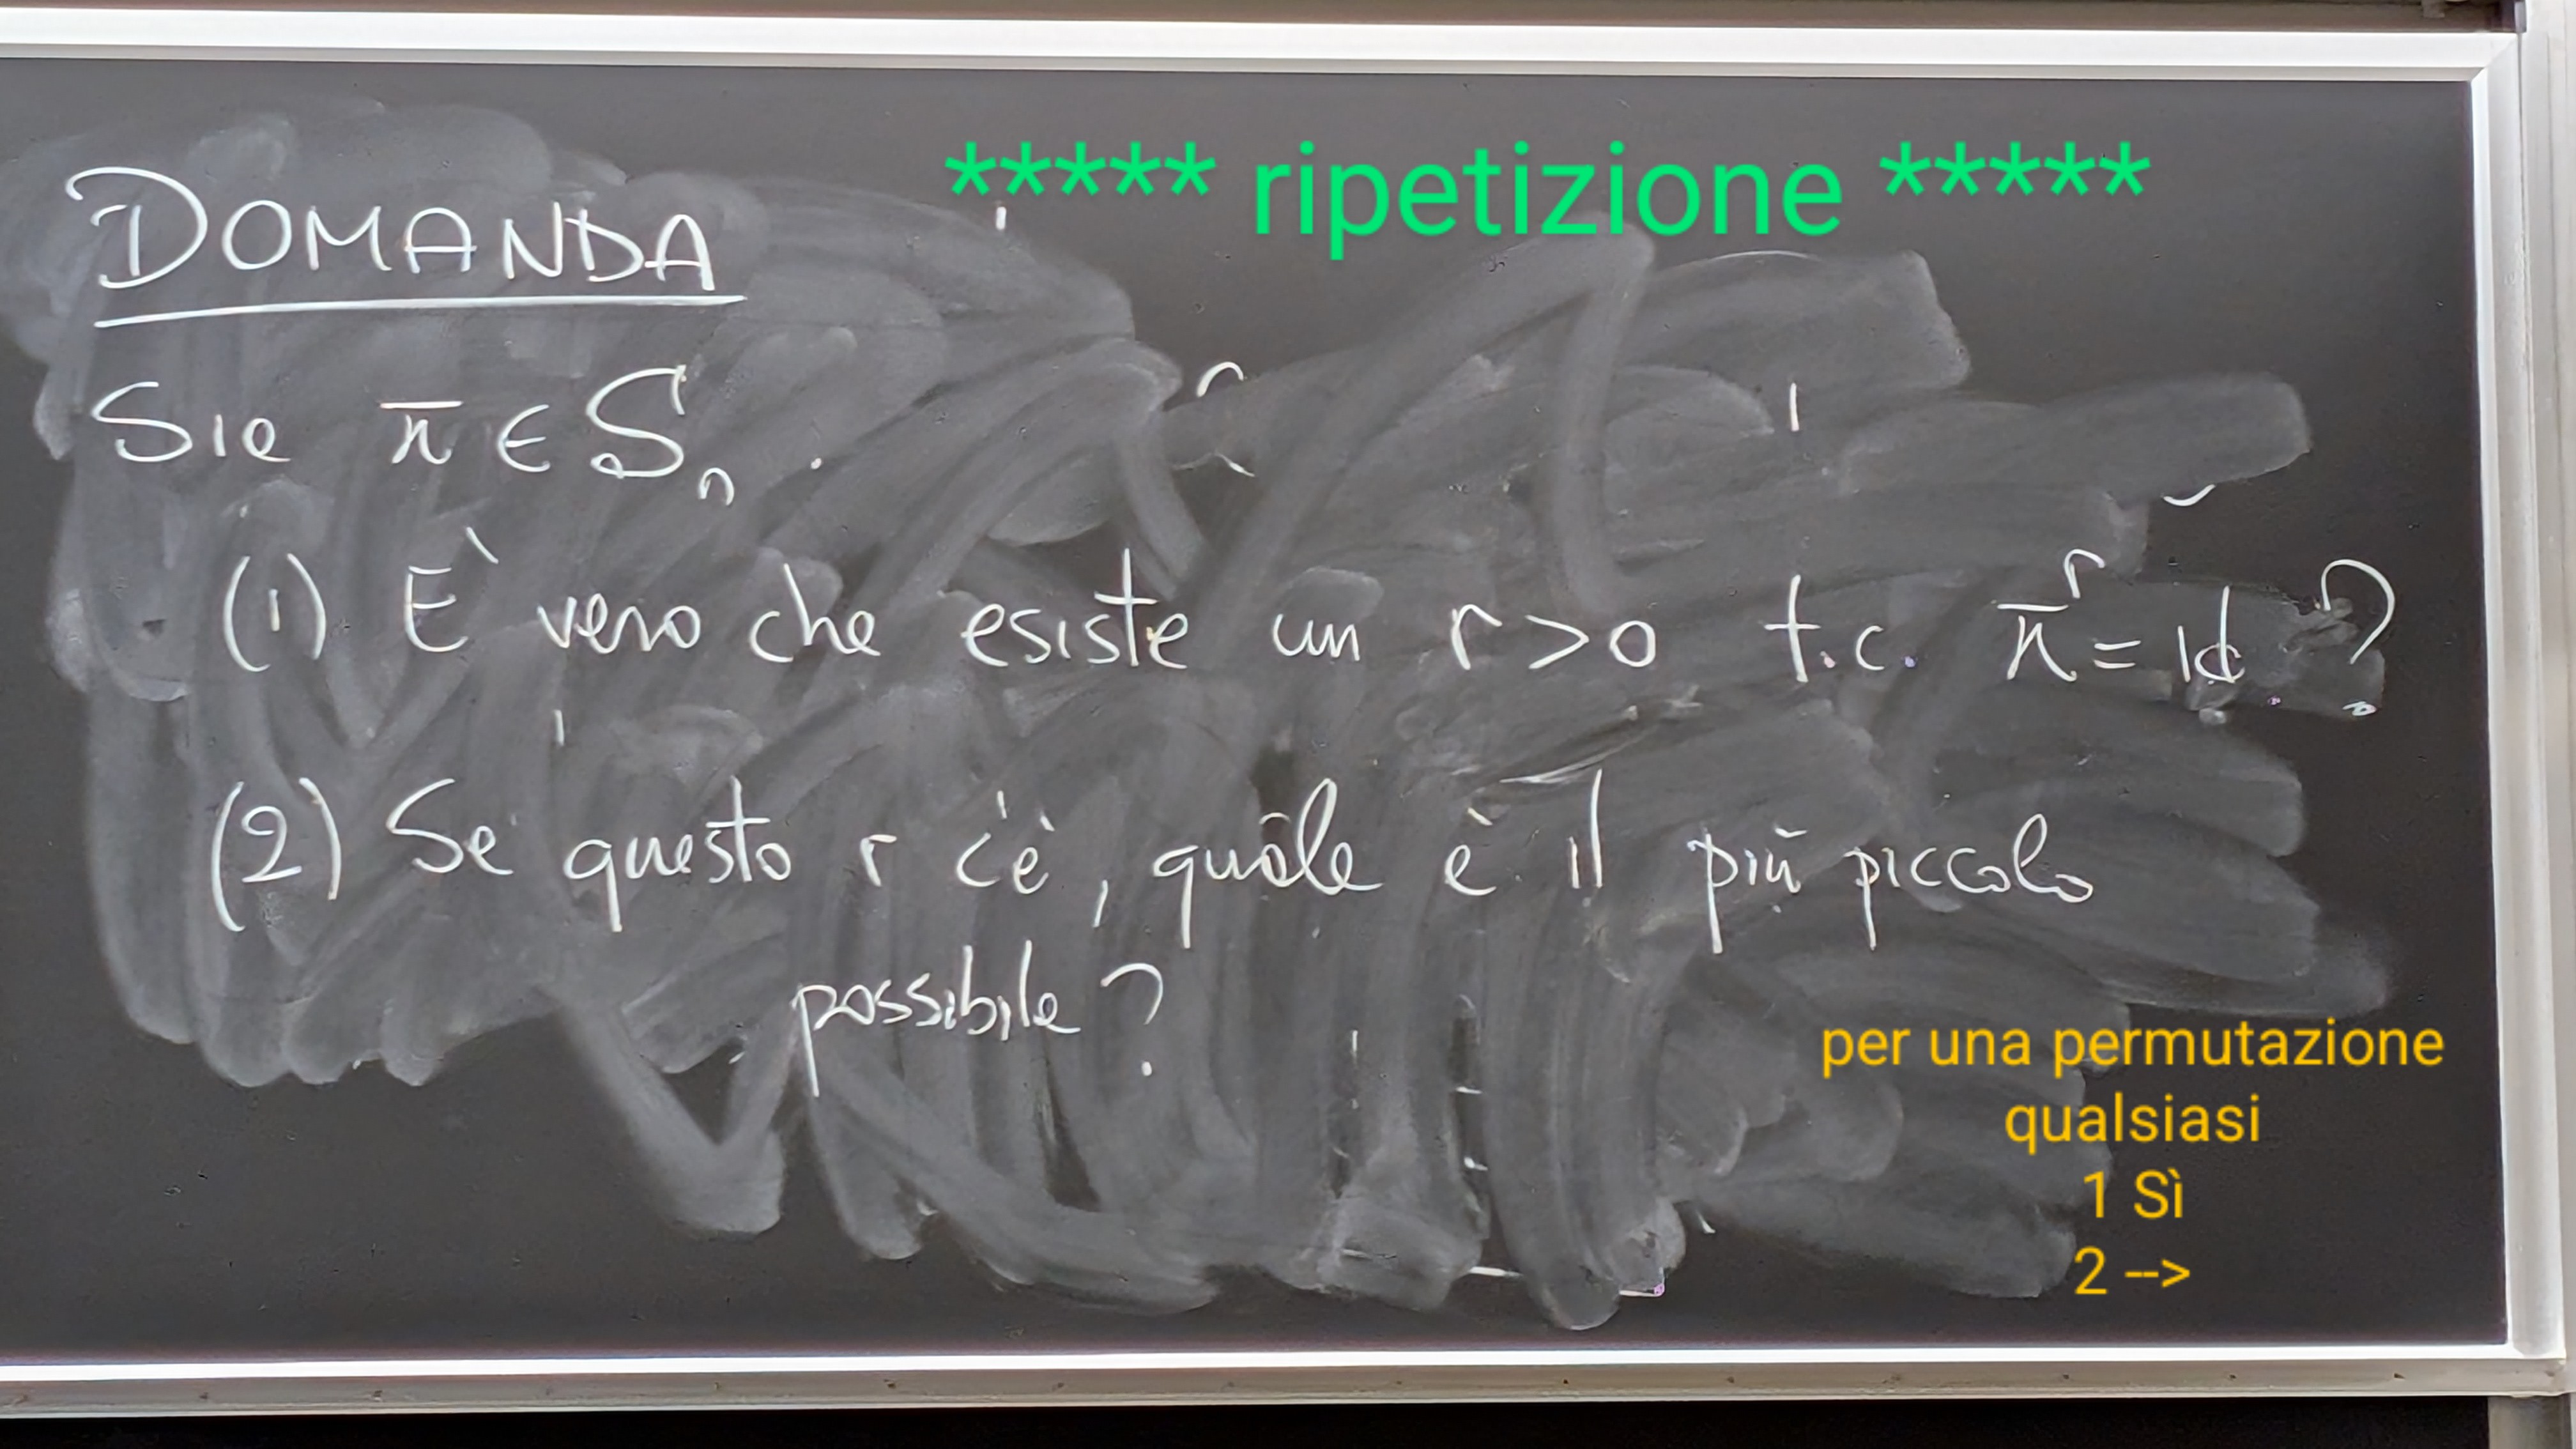 ***** ripetizione *****
DOMANDA
Sia π ∈ Sₙ.
(1) È vero che esiste un r>0 t.c. πʳ = id ?
(2) Se questo r c'è, quale è il più piccolo
possibile ?
per una permutazione
qualsiasi
1 Sì
2 -->